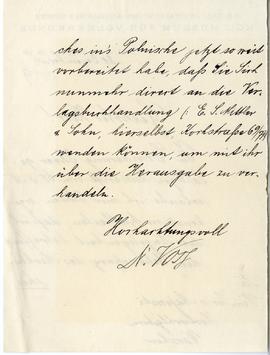 ches in's Polnische jetzt so weit
vorbereitet habe, daß Sie Sich
nunmehr direct an die Ver-
lagsbuchhandlung (: E. S. Mittler
& Sohn, hierselbst, Kochstraße 69/70)
wenden können, um mit ihr
über die Herausgabe zu ver-
handeln.
Hochachtungsvoll
A. Voß